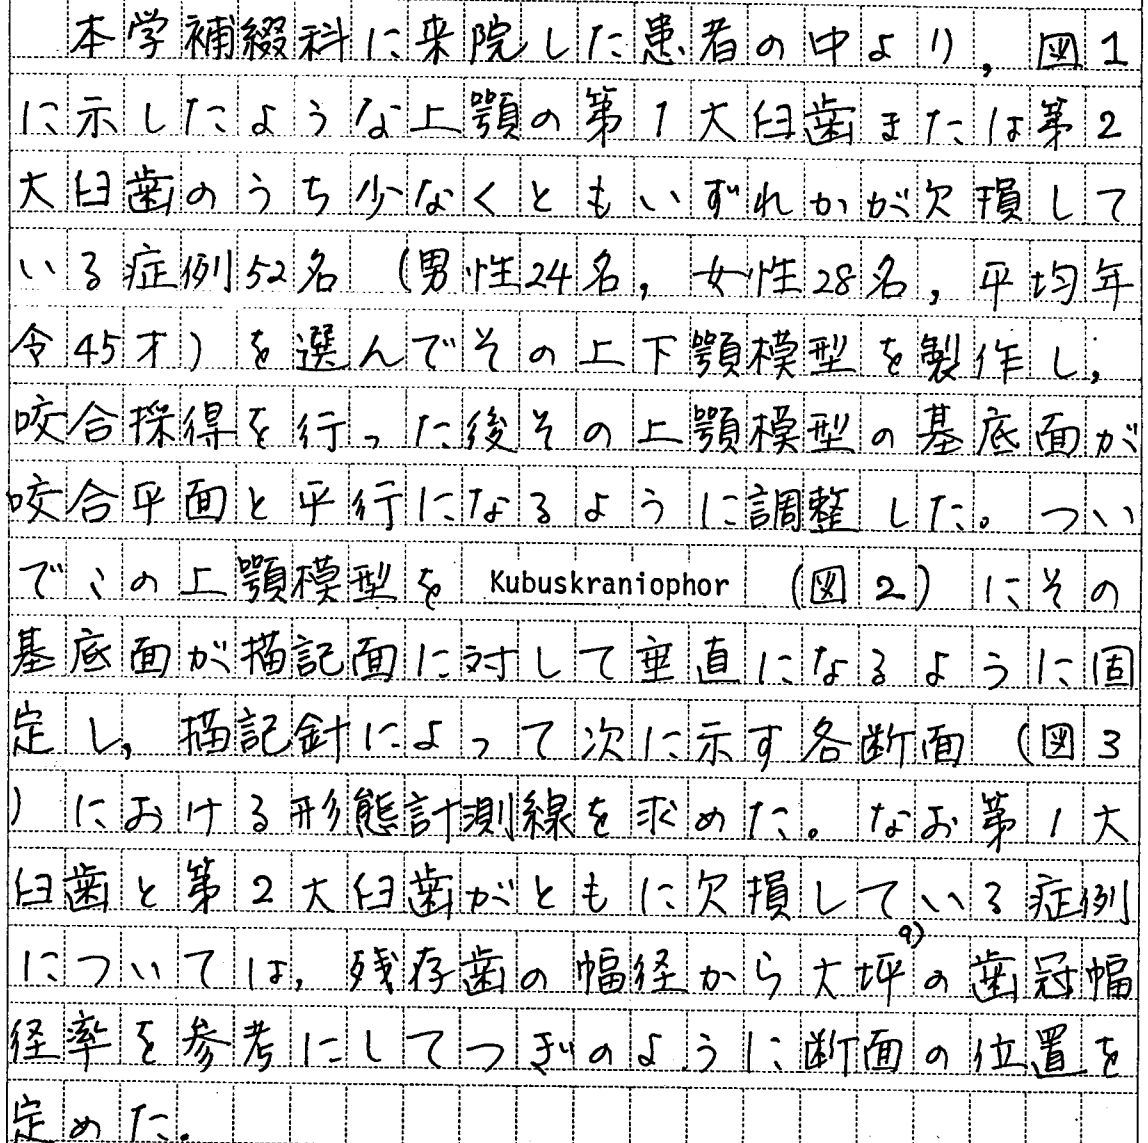 本学補綴科に来院した患者の中より，図1
に示したような上顎の第1大臼歯または第2
大臼歯のうち少なくともいずれかが欠損して
いる症例52名（男性24名，女性28名，平均年
令45才）を選んでその上下顎模型を製作し，
咬合採得を行った後その上顎模型の基底面が
咬合平面と平行になるように調整した。つい
でこの上顎模型を Kubuskraniophor （図2）にその
基底面が描記面に対して垂直になるように固
定し，描記針によって次に示す各断面（図3
）における形態計測線を求めた。なお第1大
臼歯と第2大臼歯がともに欠損している症例
については，残存歯の幅径から大坪9)の歯冠幅
径率を参考にしてつぎのように断面の位置を
定めた。